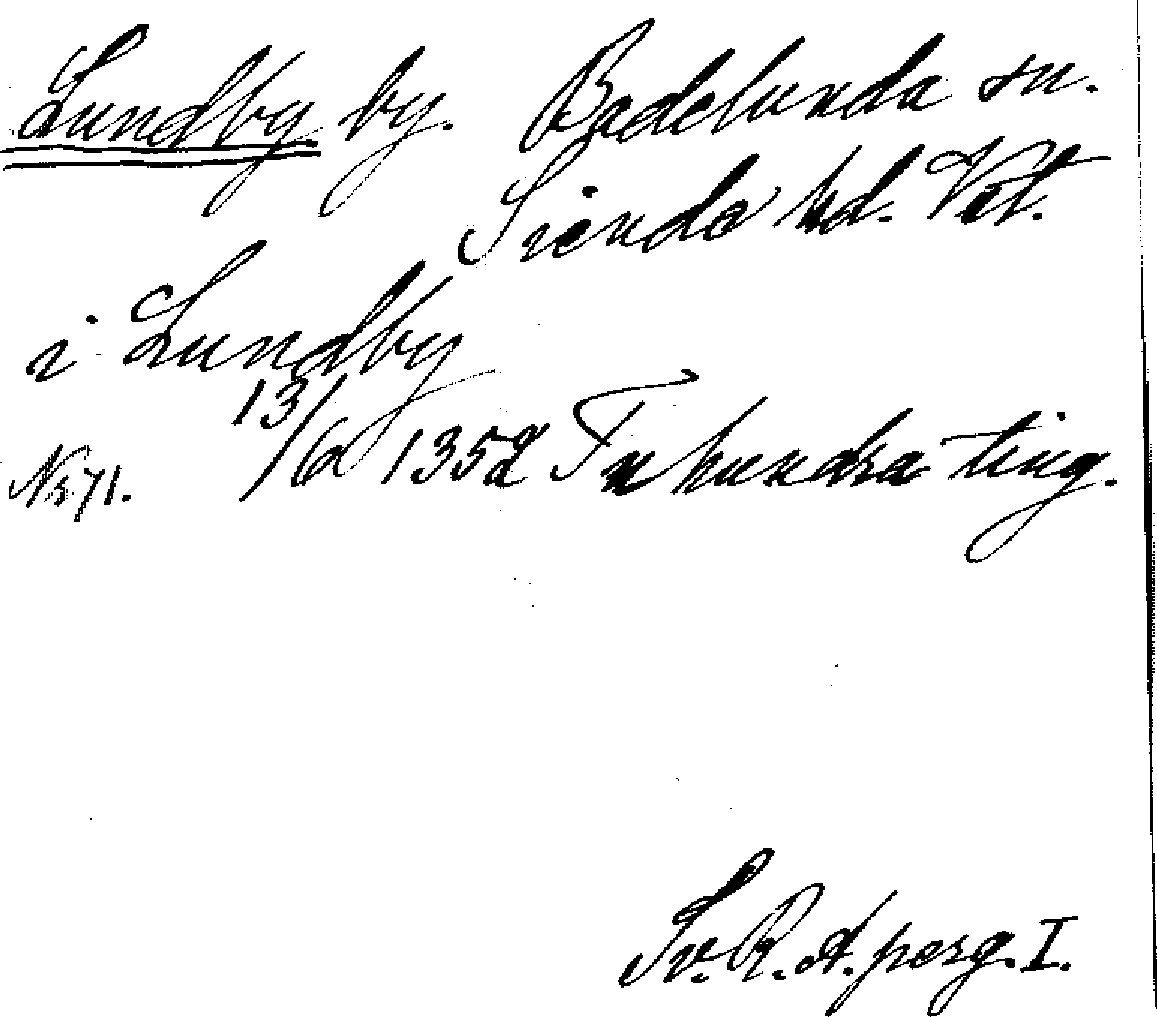 Lundby by. Badelunda sn.
Siende hd. Vstl.
i Lundby
13/6 1352 Tuhundra ting.
Nr 71.
Sv. R. A. perg. I.